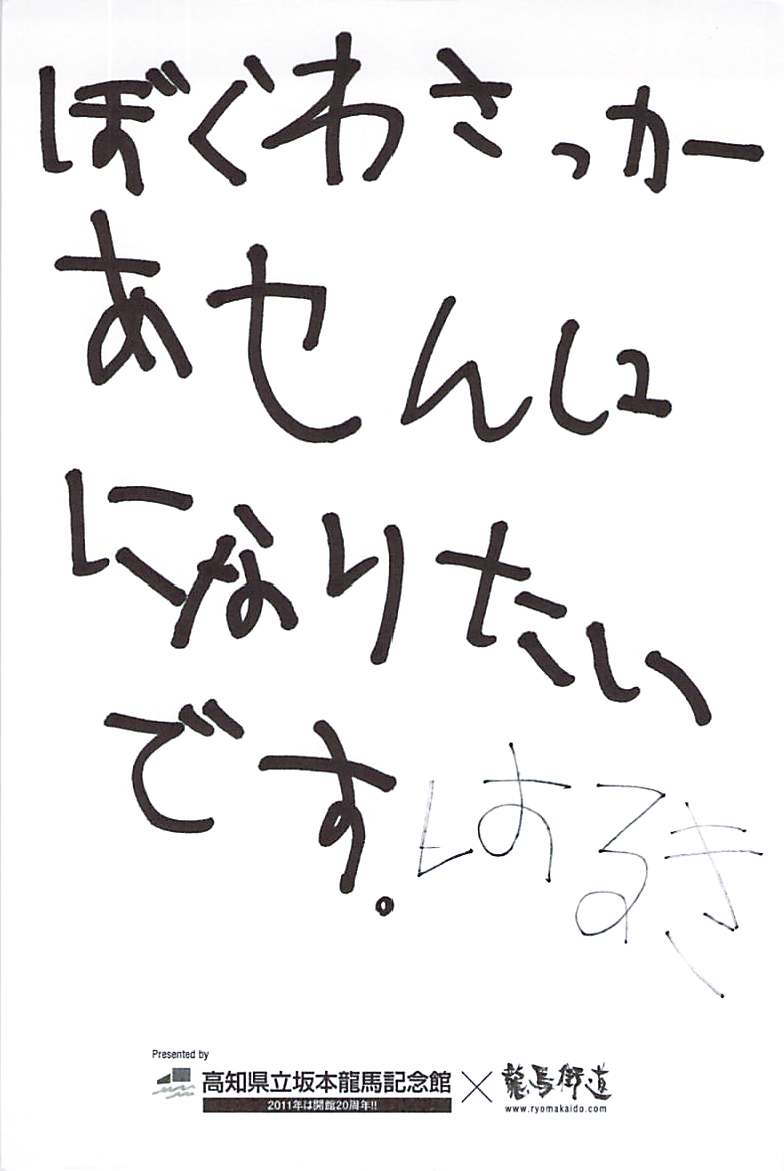 ぼぐわさっカー
あせんに
になりたい
です。
はるき
Presented by
高知県立坂本龍馬記念館
2011年は開館20周年!!
×
龍馬街道
www.ryomakaido.com